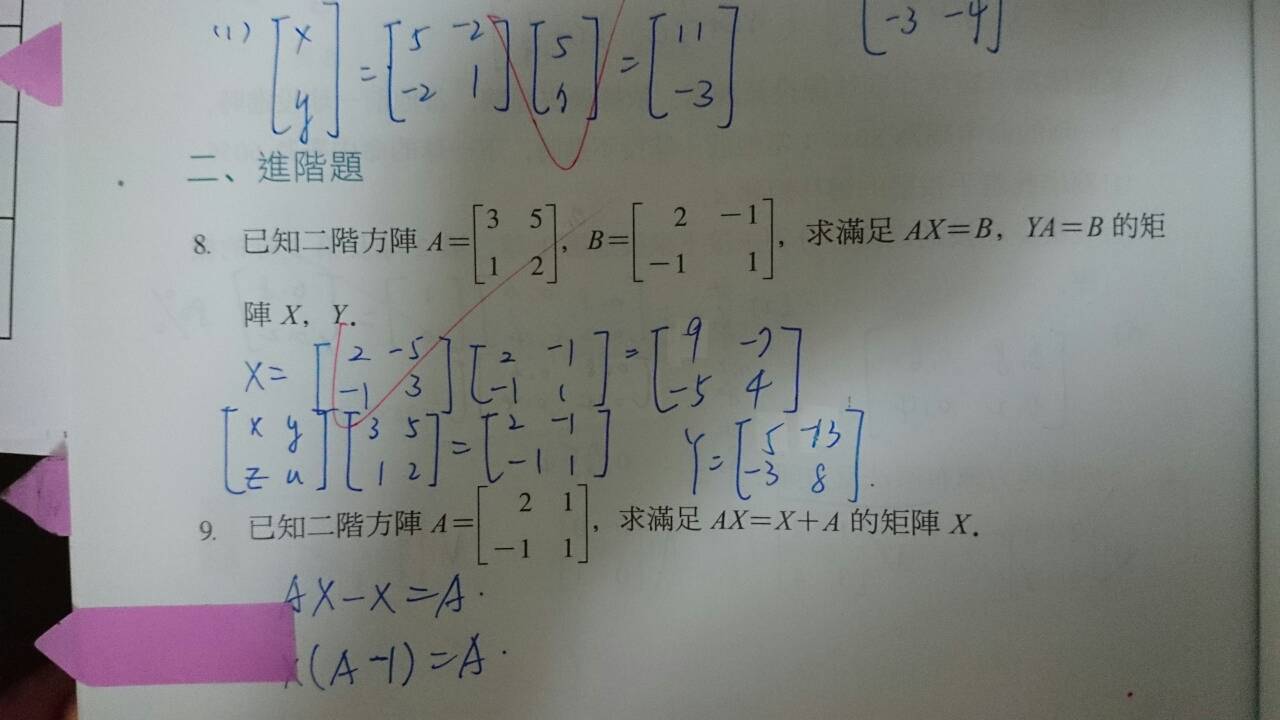 (1) [x y] = [5 -2 -2 1] [5 7] = [11 -3]
-3 -4
二、進階題
8. 已知二階方陣 A=[3 5 1 2], B=[2 -1 -1 1], 求滿足 AX=B, YA=B 的矩
陣 X, Y.
X= [2 -5 -1 3] [2 -1 -1 1] = [9 -7 -5 4]
[x y z u] [3 5 1 2] = [2 -1 -1 1] Y= [5 -13 -3 8].
9. 已知二階方陣 A=[2 1 -1 1], 求滿足 AX=X+A 的矩陣 X.
AX-X=A.
X(A-1)=A.